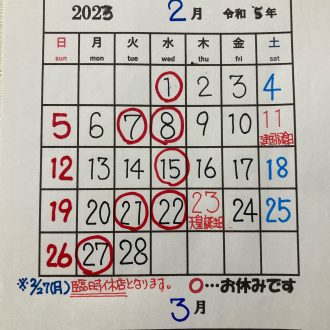 2023 2月 令和5年
日 月 火 水 木 金 土
sun mon tue wed thu fri sat
1 2 3 4
5 6 7 8 9 10 11
建国記念日
12 13 14 15 16 17 18
19 20 21 22 23 24 25
天皇誕生日
26 27 28
※2/27(月)臨時休店となります。 ○…お休みです
3月